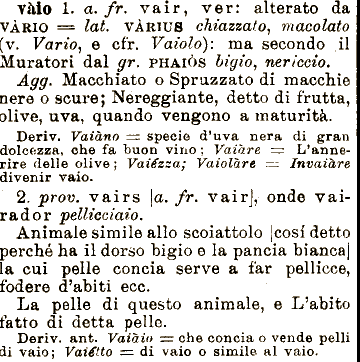 vàio 1. a. fr. vair, ver: alterato da
VÀRIO = lat. VÀRIUS chiazzato, macolato
(v. Vario, e cfr. Vaiolo): ma secondo il
Muratori dal gr. PHAIÒS bigio, nericcio.
Agg. Macchiato o Spruzzato di macchie
nere o scure; Nereggiante, detto di frutta,
olive, uva, quando vengono a maturità.
Deriv. Vaiàno = specie d'uva nera di gran
dolcezza, che fa buon vino; Vaiàre = L'anne-
rire delle olive; Vaiézza; Vaiolàre = Invaiàre
divenir vaio.
2. prov. vairs [a. fr. vair], onde vai-
rador pellicciaio.
Animale simile allo scoiattolo [così detto
perché ha il dorso bigio e la pancia bianca]
la cui pelle concia serve a far pellicce,
fodere d'abiti ecc.
La pelle di questo animale, e L'abito
fatto di detta pelle.
Deriv. ant. Vaiàio = che concia o vende pelli
di vaio; Vaiétto = di vaio o simile al vaio.